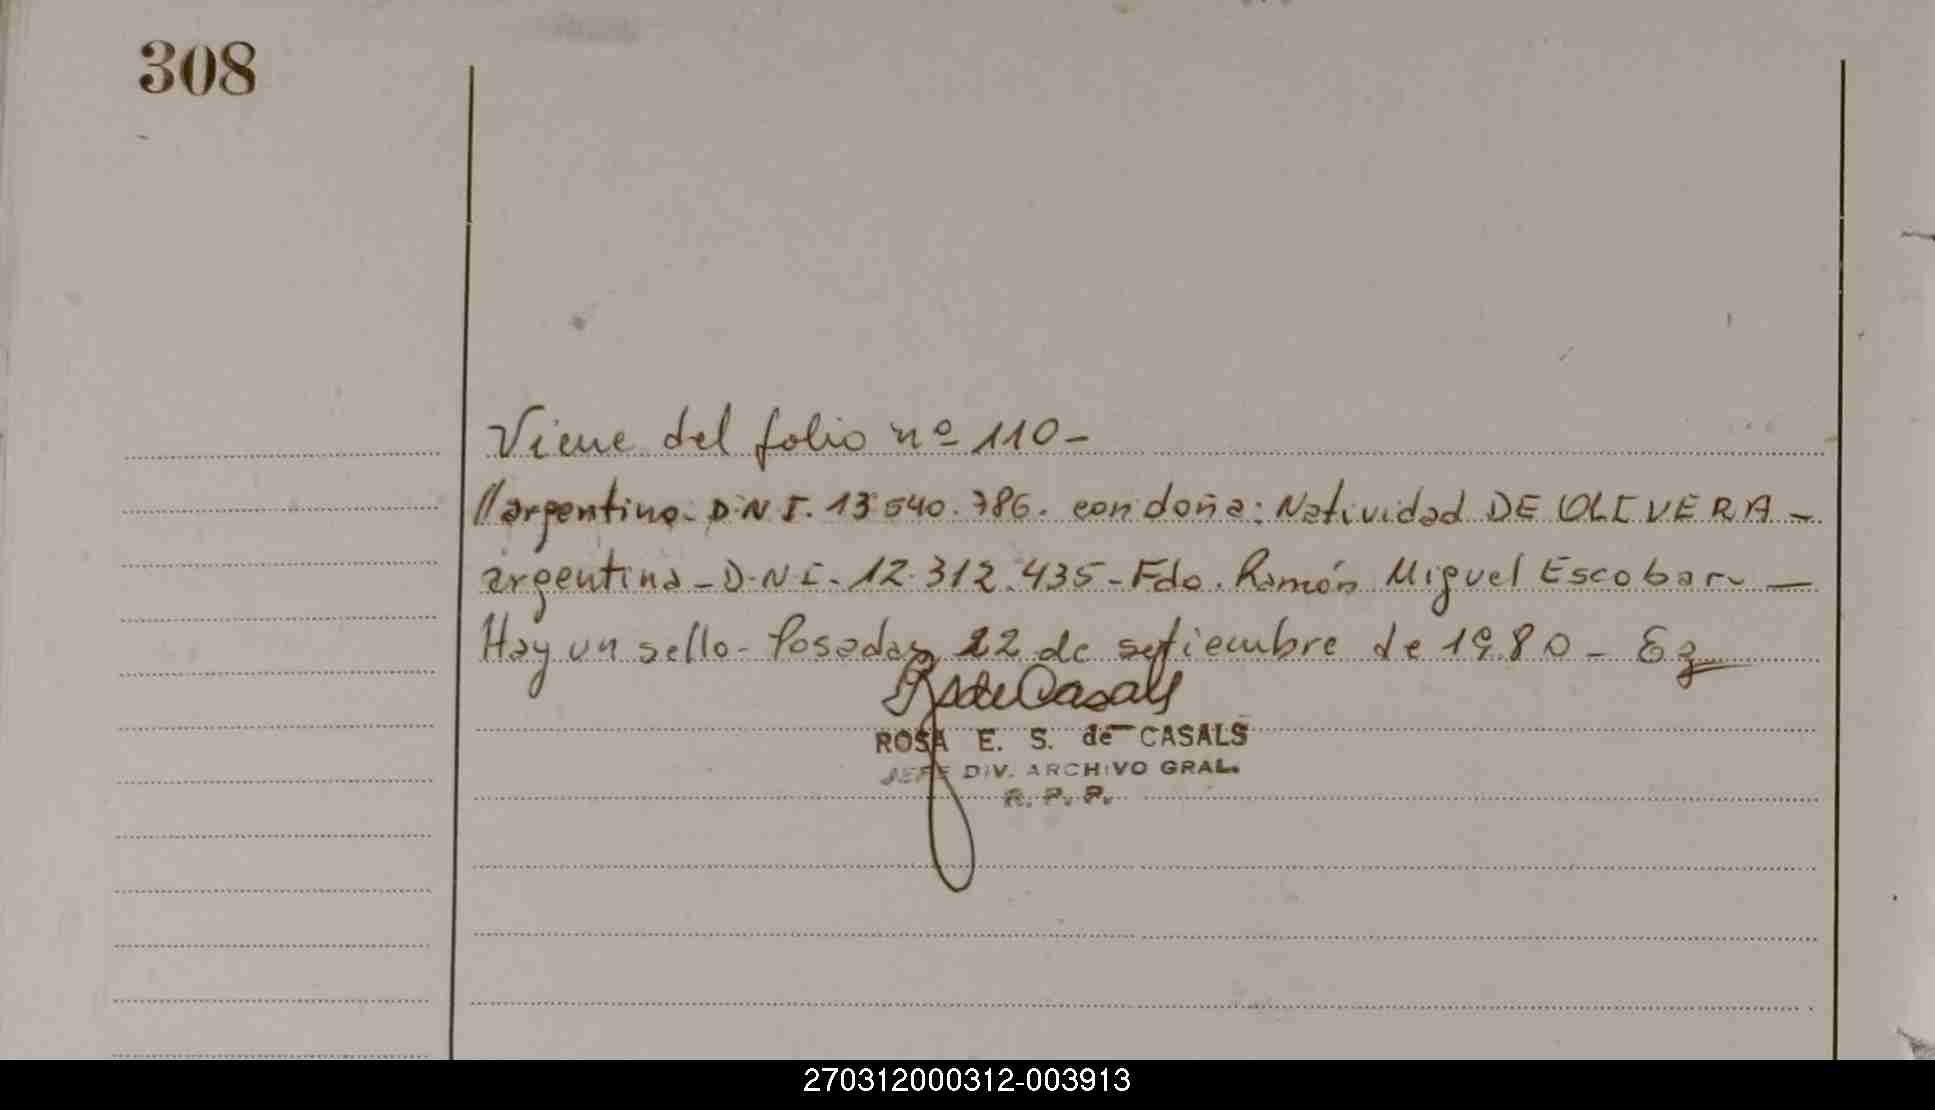 308
Viene del folio nº 110-
//argentino. D.N.I. 13.540.786. con doña: Natividad DE OLIVERA -
argentina - D.N.I. 12.312.435 - Fdo. Ramón Miguel Escobar. —
Hay un sello - Posadas, 22 de setiembre de 1980 -
RSdeCasals
ROSA E. S. de CASALS
JEFE DIV. ARCHIVO GRAL.
R. P. P.
270312000312-003913